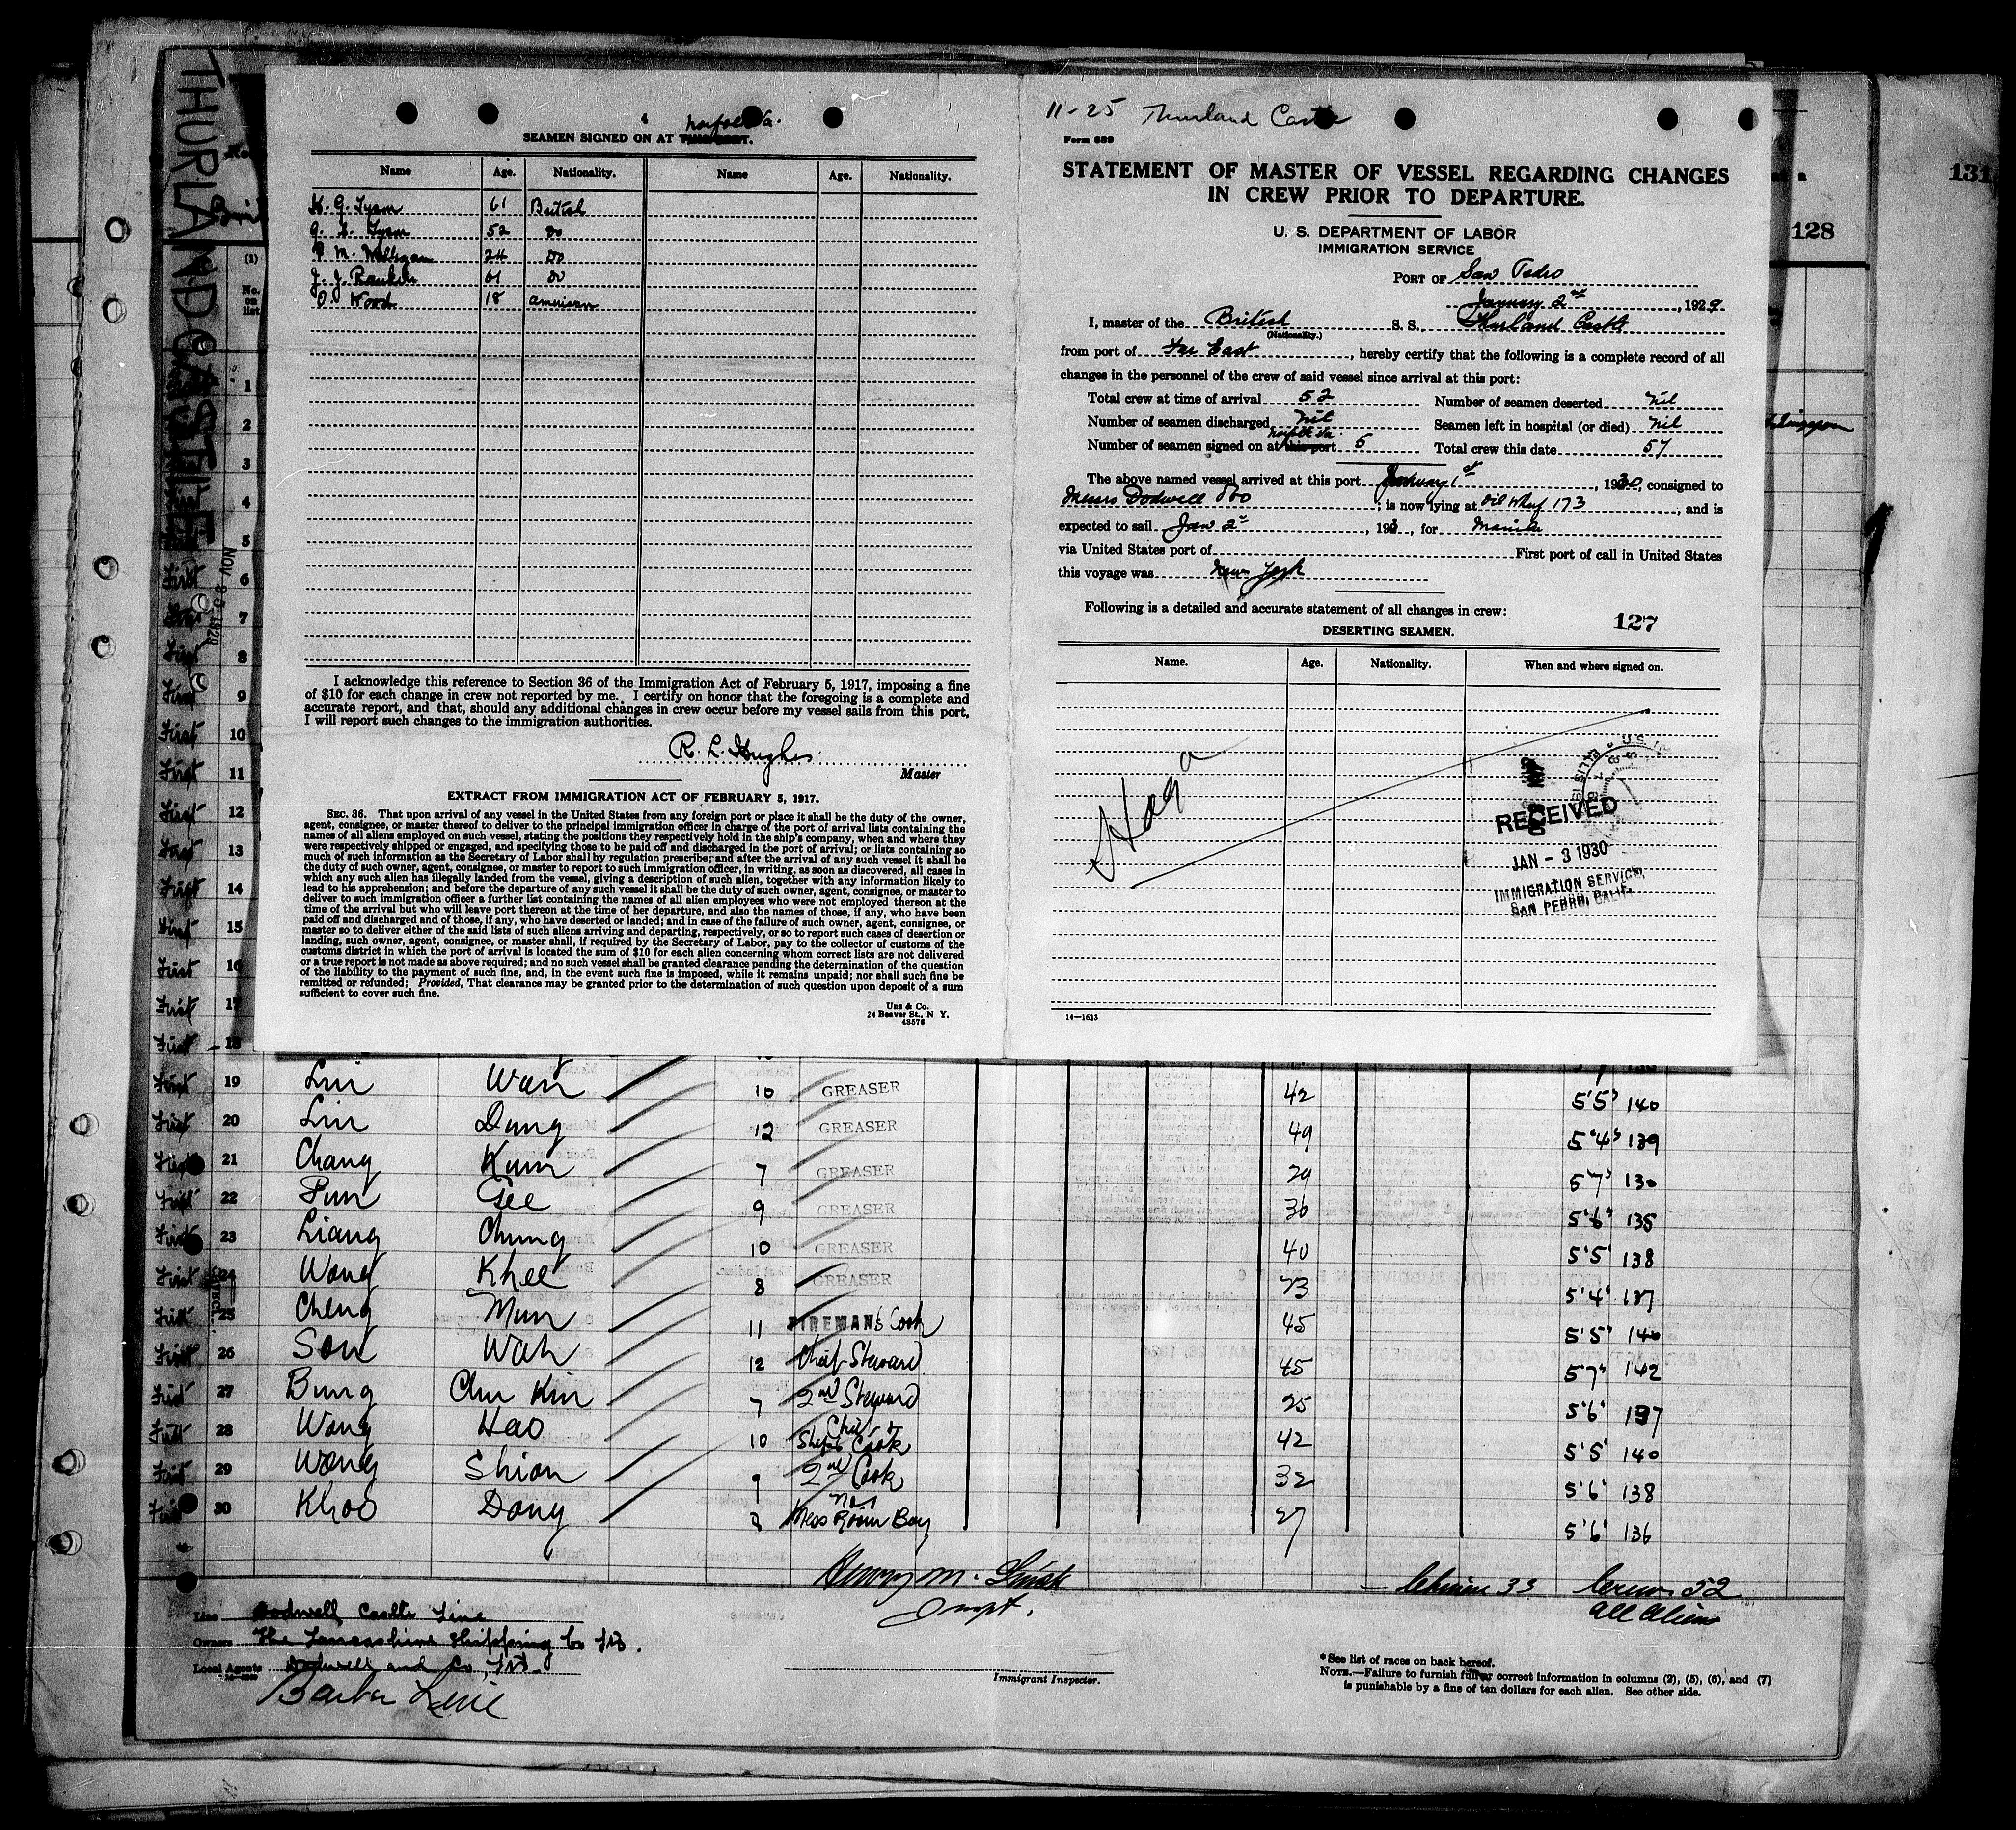 THURLAND CASTLE
NOV 25 1929
131
128
4
Norfolk Va.
SEAMEN SIGNED ON AT THIS PORT.
Name Age. Nationality. Name Age. Nationality.
H. G. Tyson 61 British
Tyson 52 Do
M. Do
J. J. Rankin 61 Do
O. Wood 18 American
I acknowledge this reference to Section 36 of the Immigration Act of February 5, 1917, imposing a fine
of $10 for each change in crew not reported by me. I certify on honor that the foregoing is a complete and
accurate report, and that, should any additional changes in crew occur before my vessel sails from this port,
I will report such changes to the immigration authorities.
R. L. Hughes
Master
EXTRACT FROM IMMIGRATION ACT OF FEBRUARY 5, 1917.
SEC. 36. That upon arrival of any vessel in the United States from any foreign port or place it shall be the duty of the owner,
agent, consignee, or master thereof to deliver to the principal immigration officer in charge of the port of arrival lists containing the
names of all aliens employed on such vessel, stating the positions they respectively hold in the ship's company, when and where they
were respectively shipped or engaged, and specifying those to be paid off and discharged in the port of arrival; or lists containing so
much of such information as the Secretary of Labor shall by regulation prescribe; and after the arrival of any such vessel it shall be
the duty of such owner, agent, consignee, or master to report to such immigration officer, in writing, as soon as discovered, all cases in
which any such alien has illegally landed from the vessel, giving a description of such alien, together with any information likely to
lead to his apprehension; and before the departure of any such vessel it shall be the duty of such owner, agent, consignee, or master to
deliver to such immigration officer a further list containing the names of all alien employees who were not employed thereon at the
time of the arrival but who will leave port thereon at the time of her departure, and also the names of those, if any, who have been
paid off and discharged and of those, if any, who have deserted or landed; and in case of the failure of such owner, agent, consignee, or
master so to deliver either of the said lists of such aliens arriving and departing, respectively, or so to report such cases of desertion or
landing, such owner, agent, consignee, or master shall, if required by the Secretary of Labor, pay to the collector of customs of the
customs district in which the port of arrival is located the sum of $10 for each alien concerning whom correct lists are not delivered
or a true report is not made as above required; and no such vessel shall be granted clearance pending the determination of the question
of the liability to the payment of such fine, and, in the event such fine is imposed, while it remains unpaid; nor shall such fine be
remitted or refunded; Provided, That clearance may be granted prior to the determination of such question upon deposit of a sum
sufficient to cover such fine.
Uns & Co.
24 Beaver St., N Y.
43576
11-25 Thurland Castle
Form 689
STATEMENT OF MASTER OF VESSEL REGARDING CHANGES
IN CREW PRIOR TO DEPARTURE.
U. S. DEPARTMENT OF LABOR
IMMIGRATION SERVICE
PORT OF San Pedro
January 2nd, 1929
I, master of the British S. S. Thurland Castle
(Nationality.)
from port of Far East, hereby certify that the following is a complete record of all
changes in the personnel of the crew of said vessel since arrival at this port:
Total crew at time of arrival 52 Number of seamen deserted Nil
Number of seamen discharged Nil Seamen left in hospital (or died) Nil
Norfolk Va.
Number of seamen signed on at this port 5 Total crew this date 57
The above named vessel arrived at this port January 1st, 1930, consigned to
Messrs Dodwell & Co; is now lying at Oil Whf 173, and is
expected to sail Jan 2nd, 193, for Manila
via United States port of First port of call in United States
this voyage was New York
Following is a detailed and accurate statement of all changes in crew:
127
DESERTING SEAMEN.
Name. Age. Nationality. When and where signed on.
RECEIVED
JAN - 3 1930
IMMIGRATION SERVICE,
SAN PEDRO, CALIF.
14—1613
(1)
No. on list
1
2
3
4
5
First 6
7
First 8
First 9
First 10
First 11
First 12
First 13
First 14
First 15
First 16
First 17
First 18
First 19 Lui Wan 10 GREASER 42 5'5" 140
First 20 Lin Dung 12 GREASER 49 5'4" 139
First 21 Chang Kum 7 GREASER 29 5'7" 130
First 22 Pun Gee 9 GREASER 36 5'6" 135
First 23 Liang Chung 10 GREASER 40 5'5" 138
First 24 Wong Khee 8 GREASER 5'4" 137
First 25 Cheng Mun 11 FIREMAN's Cook 45 5'5" 140
First 26 Son Wah 12 Chief Steward 45 5'7" 142
First 27 Bung Chu Kin 7 2nd Steward 25 5'6" 137
First 28 Wong Hao 10 Chief Cook 42 5'5" 140
First 29 Wong Shion 9 2nd Cook 32 5'6" 138
First 30 Khoo Dong 8 Mess Room Boy 27 5'6" 136
Inspt.
Chinese 33 Crew 52
all Aliens
Line Dodwell Castle Line
Owners The Lancashire Shipping Co Ltd.
Local Agents Dodwell and Co, Ltd.
Barber Line
Immigrant Inspector.
*See list of races on back hereof.
NOTE.—Failure to furnish full or correct information in columns (2), (5), (6), and (7)
is punishable by a fine of ten dollars for each alien. See other side.